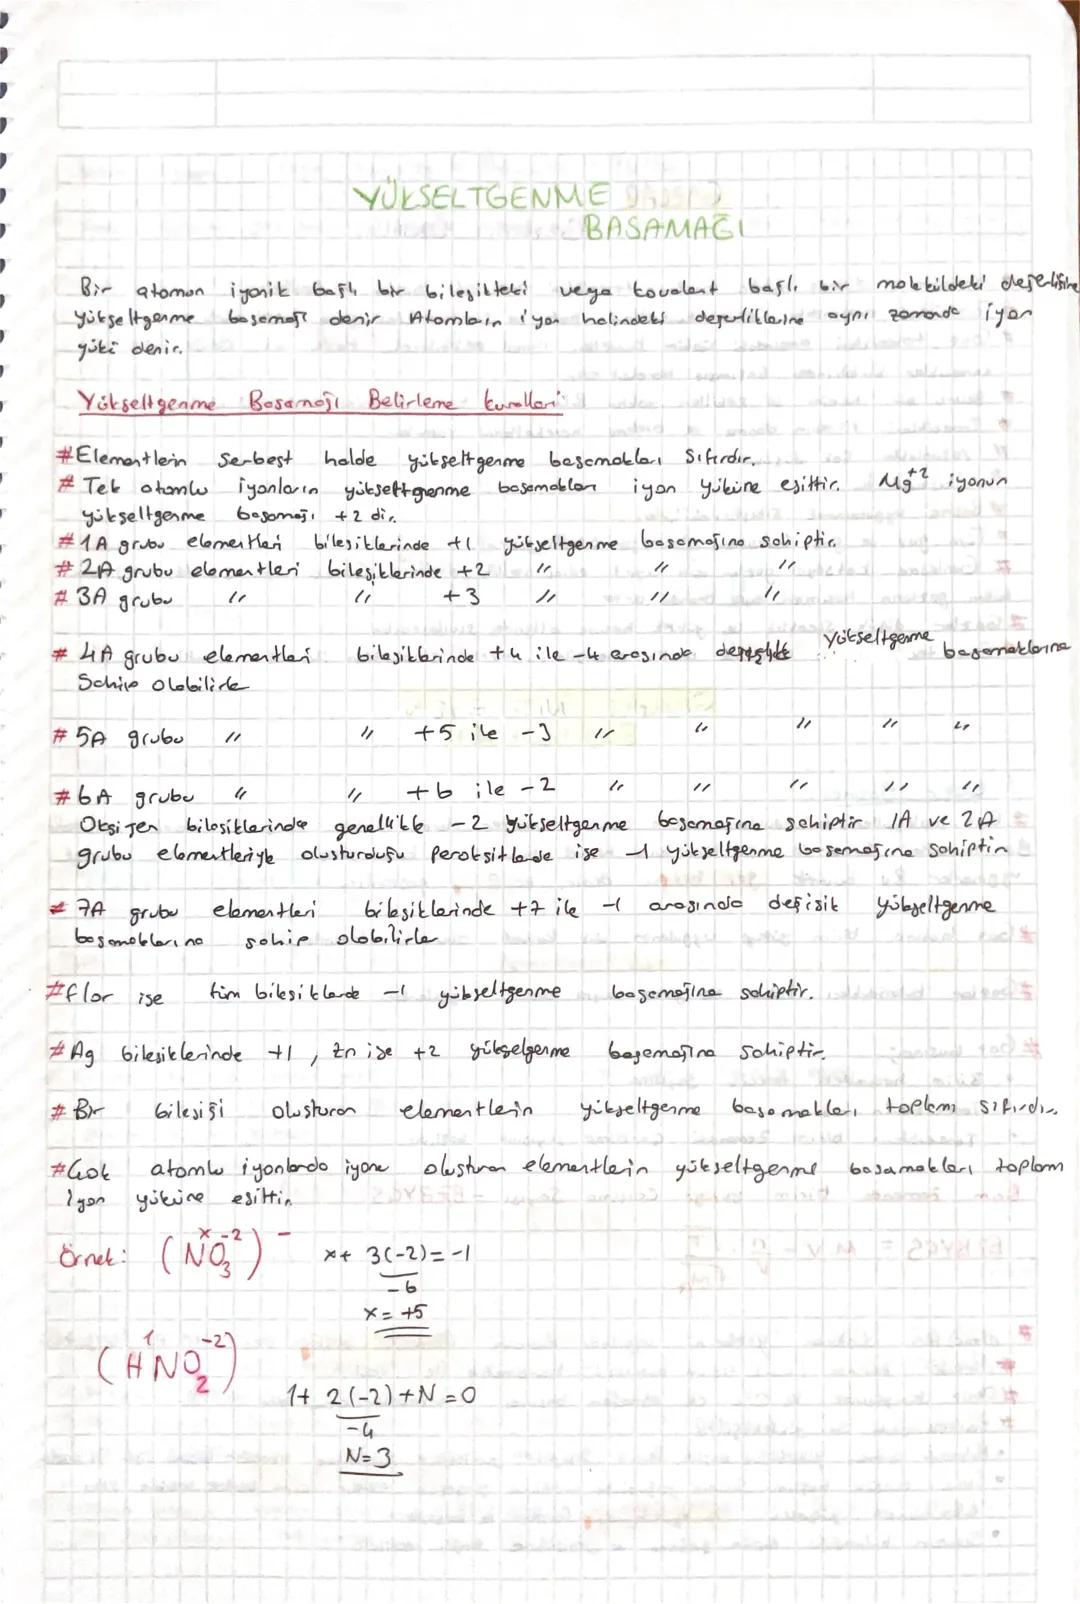 YÜKSELTGENME
BASAMAĞI
Bir atomun iyonik bağlı bir bileşikteki veya kovalent bağlı bir moleküldeki değerliğine
yükseltgenme basamağı denir Atomların iyon halindeki değerliklerine aynı zamanda iyon
yükü denir.
Yükseltgenme Basamağı Belirleme kuralları
#Elementlerin serbest halde yükseltgenme basamakları sıfırdır.
# Tek atomlu iyonların yükseltgenme basamakları iyon yüküne eşittir. Mg+2 iyonun
yükseltgenme basamağı +2 dir.
# 1A grubu elementleri bileşiklerinde +1 yükseltgenme basamağına sahiptir.
# 2A grubu elementleri bileşiklerinde +2 " " "
# 3A grubu " " +3 " " "
# 4A grubu elementleri bileşiklerinde +4 ile -4 arasında değişik yükseltgenme basamaklarına
Sahip olabilirler
# 5A grubu " " +5 ile -3 " " " " "
# 6A grubu " " +6 ile -2 " " " " "
Oksijen bileşiklerinde genellikle -2 yükseltgenme basamağına sahiptir 1A ve 2A
grubu elementleriyle oluşturduğu peroksitlerde ise -1 yükseltgenme basamağına sahiptir
# 7A grubu elementleri bileşiklerinde +7 ile -1 arasında değişik yükseltgenme
basamaklarına sahip olabilirler
#flor ise tüm bileşiklerde -1 yükseltgenme basamağına sahiptir.
# Ag bileşiklerinde +1, Zn ise +2 yükselgenme basamağına sahiptir.
# Bir bileşiği oluşturan elementlerin yükseltgenme basamakları toplamı sıfırdır.
#Çok atomlu iyonlarda iyonu oluşturan elementlerin yükseltgenme basamakları toplamı
iyon yüküne eşittir
Örnek: (NO3)- x -2 x+ 3(-2)=-1
-6
x=+5
(HNO2) 1 -2
1+ 2(-2)+N=0
-4
N=3